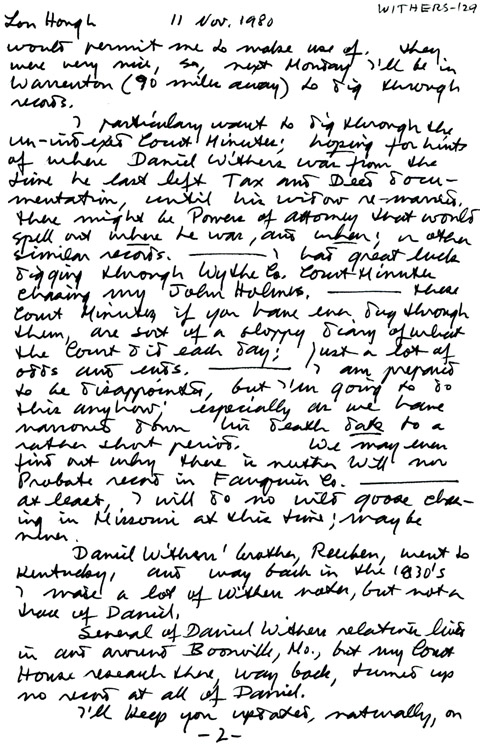 WITHERS-129
Lon Hough 11 Nov. 1980
would permit me to make use of. They
were very nice, so, next Monday I'll be in
Warrenton (90 miles away) to dig through
records.
I particulary want to dig through the
un-indexed Court Minutes; hoping for hints
of where Daniel Withers was from the
time he last left Tax and Deed docu-
mentation, until his widow re-married,
there might be Powers of attorney that would
spell out where he was, and when; or other
similar records. ——— I had great luck
digging through Wythe Co. Court Minutes
chasing my John Holmes. ——— These
Court Minutes if you have ever dug through
them, are sort of a sloppy diary of what
the Court did each day; just a lot of
odds and ends. ——— I am prepared
to be disappointed, but I'm going to do
this anyhow; especially as we have
narrowed down his death date to a
rather short period. We may even
find out why there is neither Will nor
Probate record in Fauquier Co. ———
at least, I will do no wild goose chas-
ing in Missouri at this time; maybe
never.
Daniel Withers' brother, Reuben, went to
Kentucky, and way back in the 1930's
I made a lot of Withers notes, but not a
trace of Daniel.
Several of Daniel Withers relatives lived
in and around Boonville, Mo., but my Court
House research there, way back, turned up
no record at all of Daniel.
I'll keep you updated, naturally, on
-2-